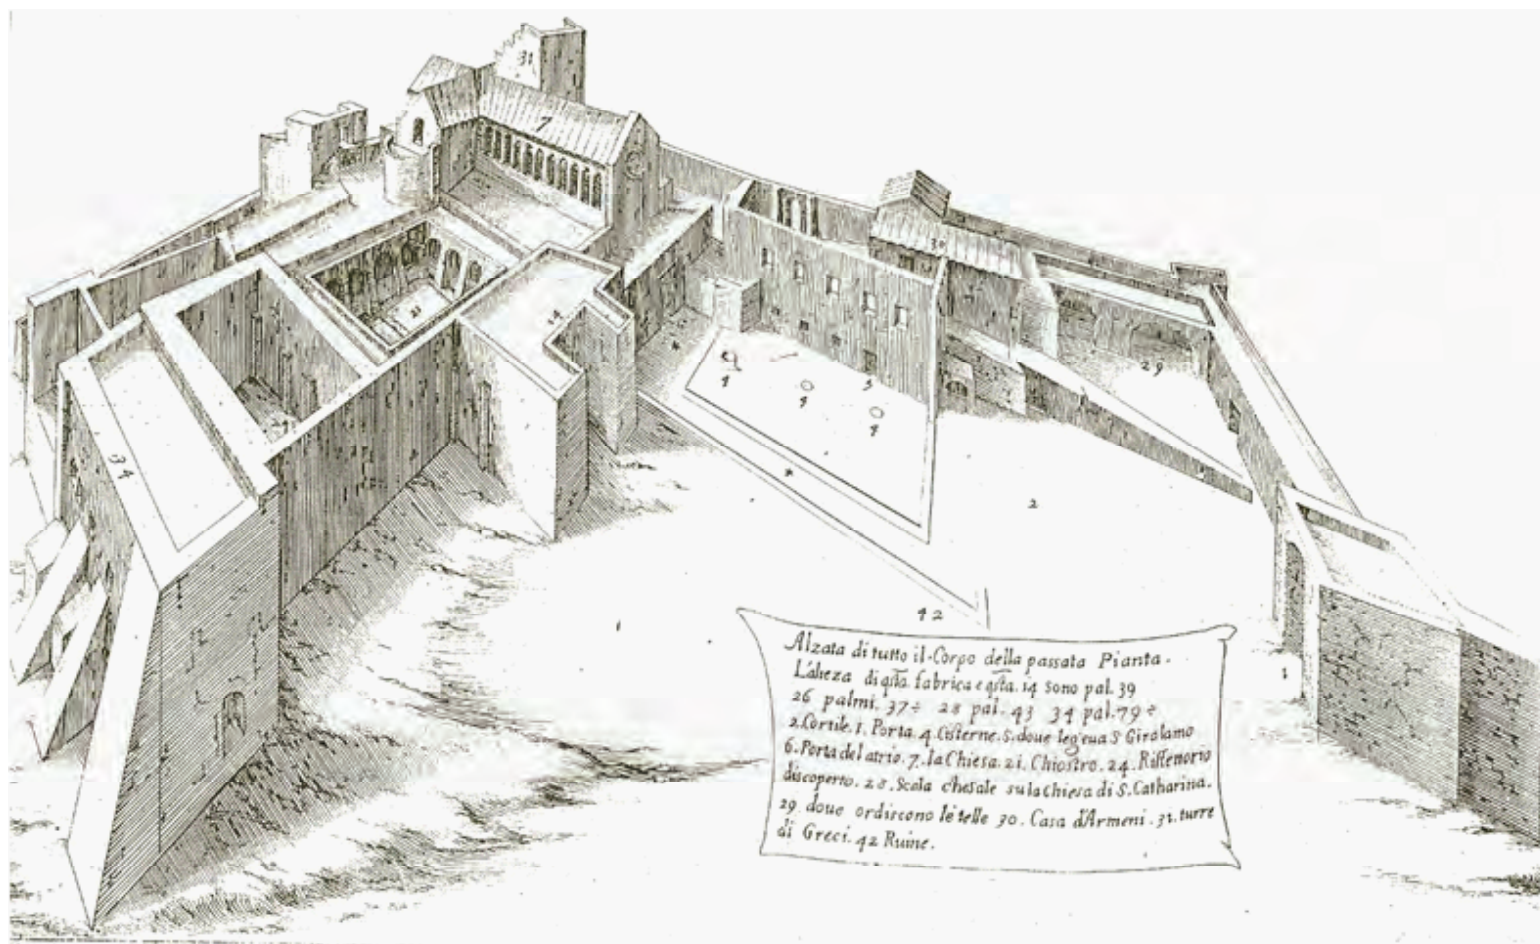 31
7
30
21
24
29
4
4
4
5
34
2
42
1
Alzata di tutto il Corpo della passata Pianta.
L'alteza di qsta fabrica e qsta. 14 sono pal. 39
26 palmi. 37÷ 28 pal. 43 34 pal. 79÷
2. Cortile. 1. Porta. 4. Cisterne. 5. doue legeua S Girolamo
6. Porta del atrio. 7. la Chiesa. 21. Chiostro. 24. Riffettorio
discoperto. 28. Scala che sale su la Chiesa di S. Catharina.
29 doue ordiscono le telle 30. Casa d'Armeni. 31. turre
di Greci. 42 Ruine.